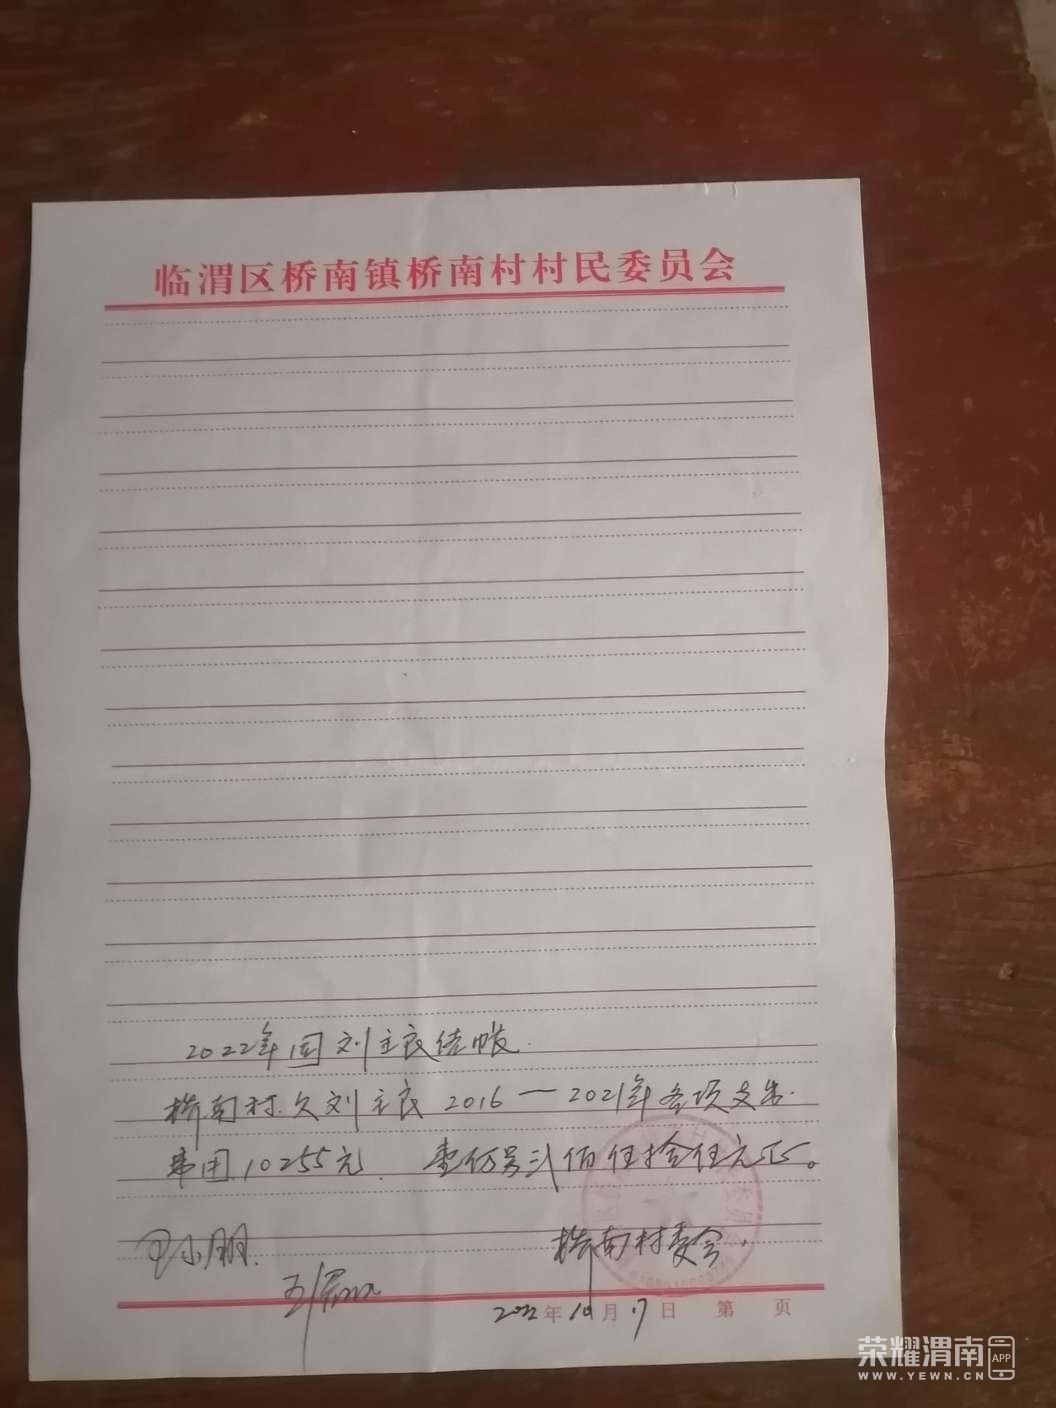 临渭区桥南镇桥南村村民委员会
2022年同刘主良结帐
桥南村欠刘主良2016—2021年各项支出
费用10255元 壹仿另弍佰伍拾伍元正。
小朋
桥南村委会.
2022年10月17日 第 页
荣耀渭南 APP
WWW.YEWN.CN